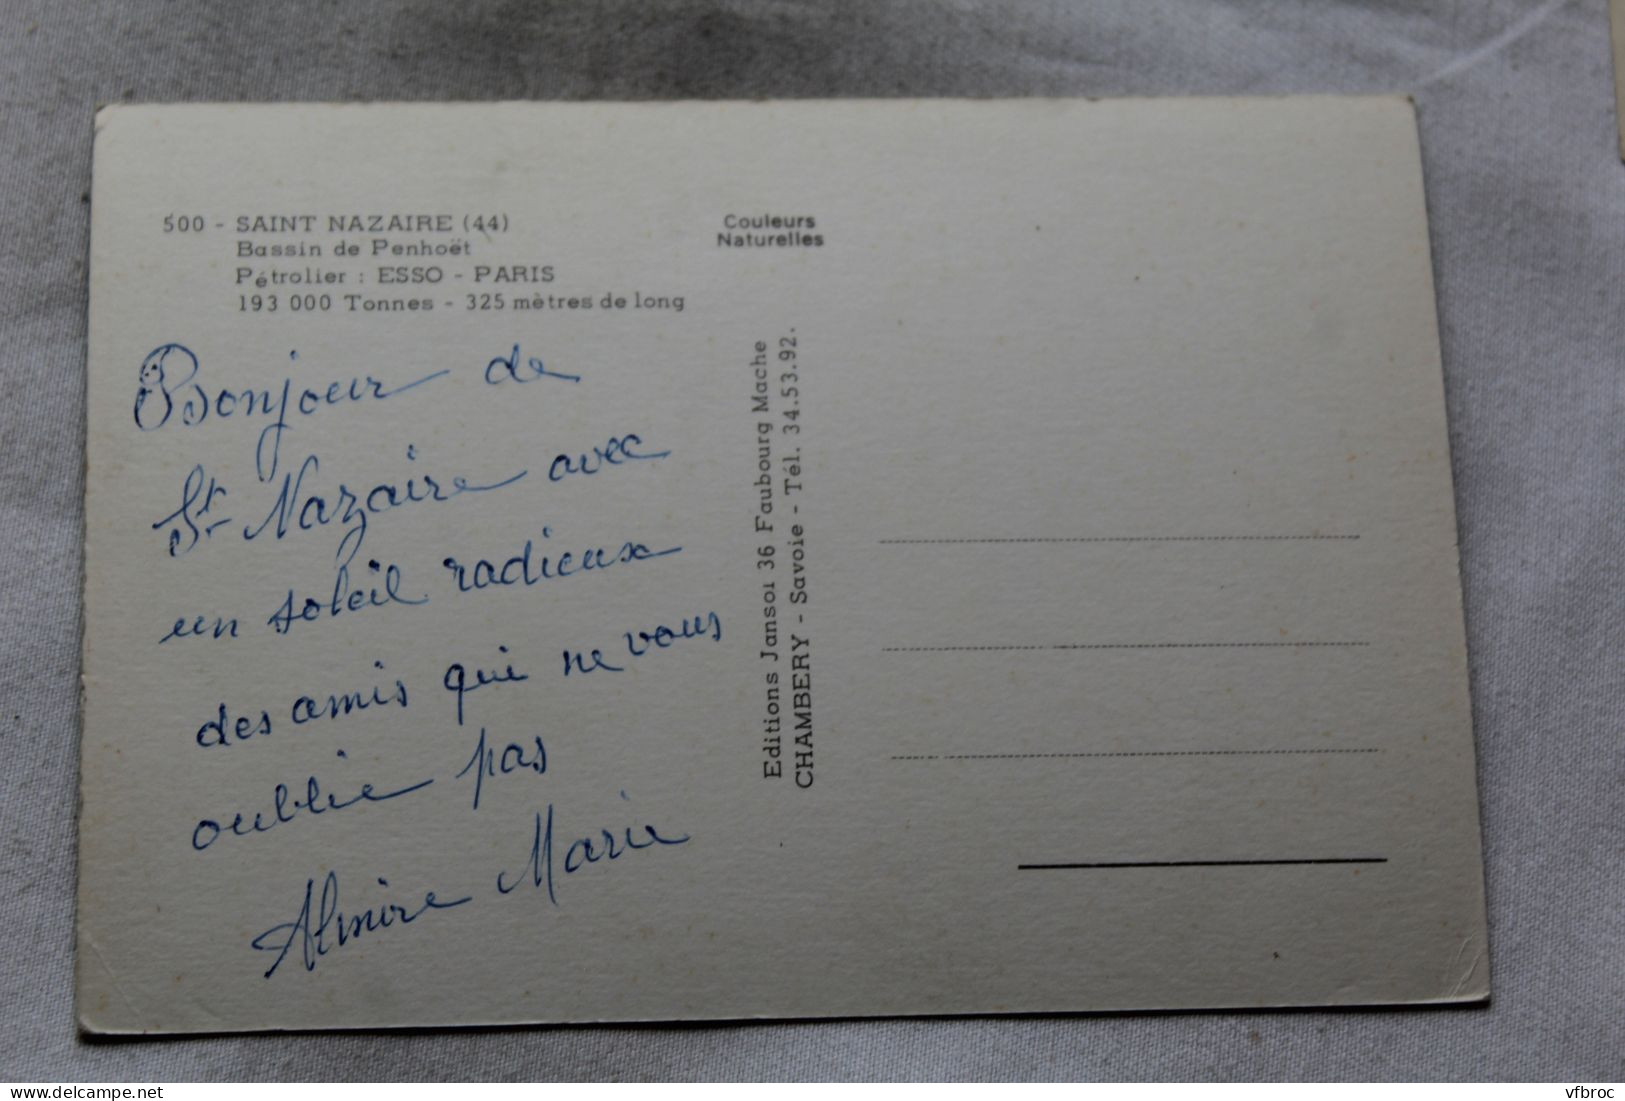 500 - SAINT NAZAIRE (44)
Bassin de Penhoët
Pétrolier : ESSO - PARIS
193 000 Tonnes - 325 mètres de long
Couleurs
Naturelles
Bonjour de
St Nazaire avec
un soleil radieux
des amis qui ne vous
oublie pas
Almire Marie
Editions Jansol 36 Faubourg Mache
CHAMBERY - Savoie - Tél. 34.53.92.
delcampe.net
vfbroc